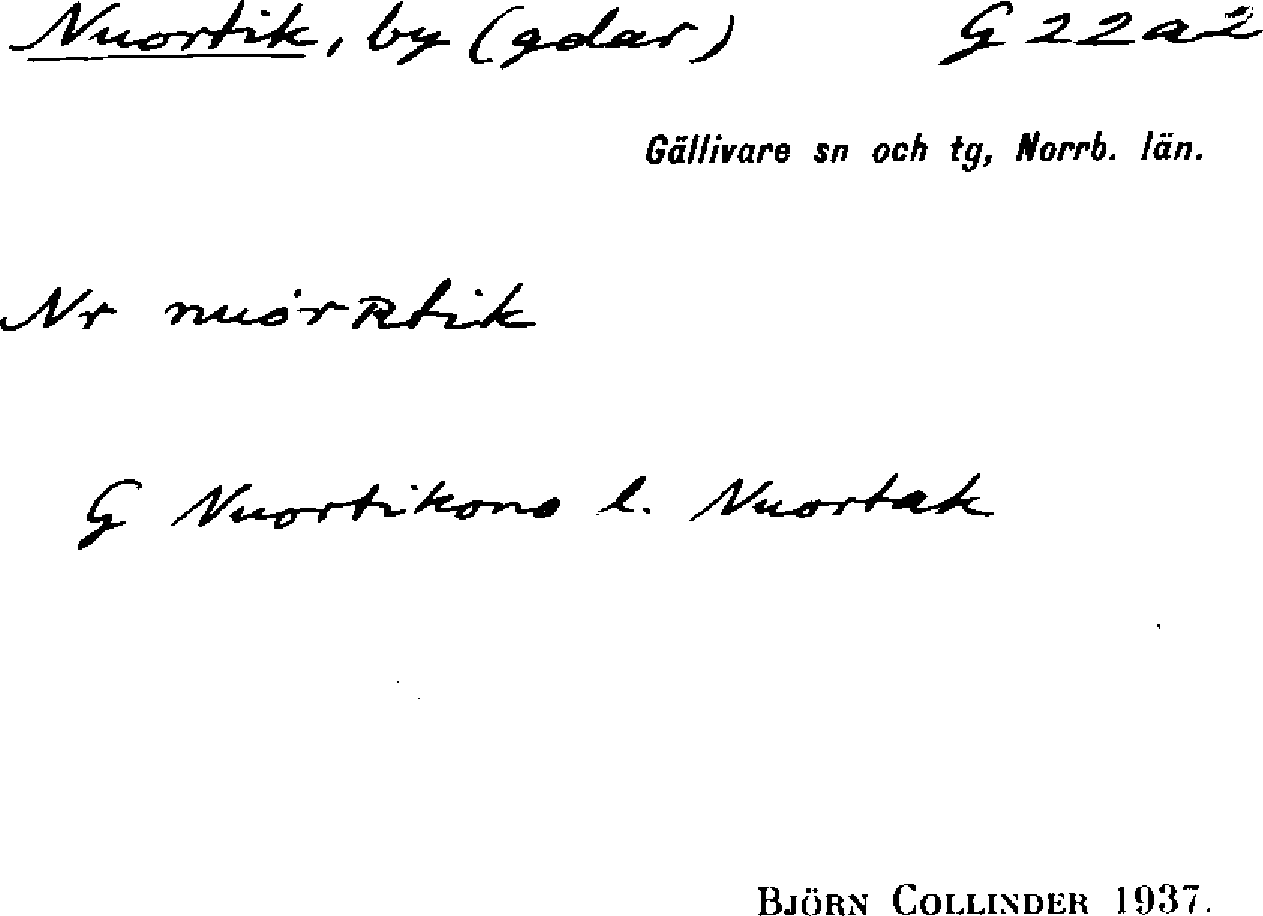 Nuortik, by (gdar) G 22 a 2
Gällivare sn och tg, Norrb. län.
Nr nuòrRtik
G Nuortikono l. Nuortak
BJÖRN COLLINDER 1937.